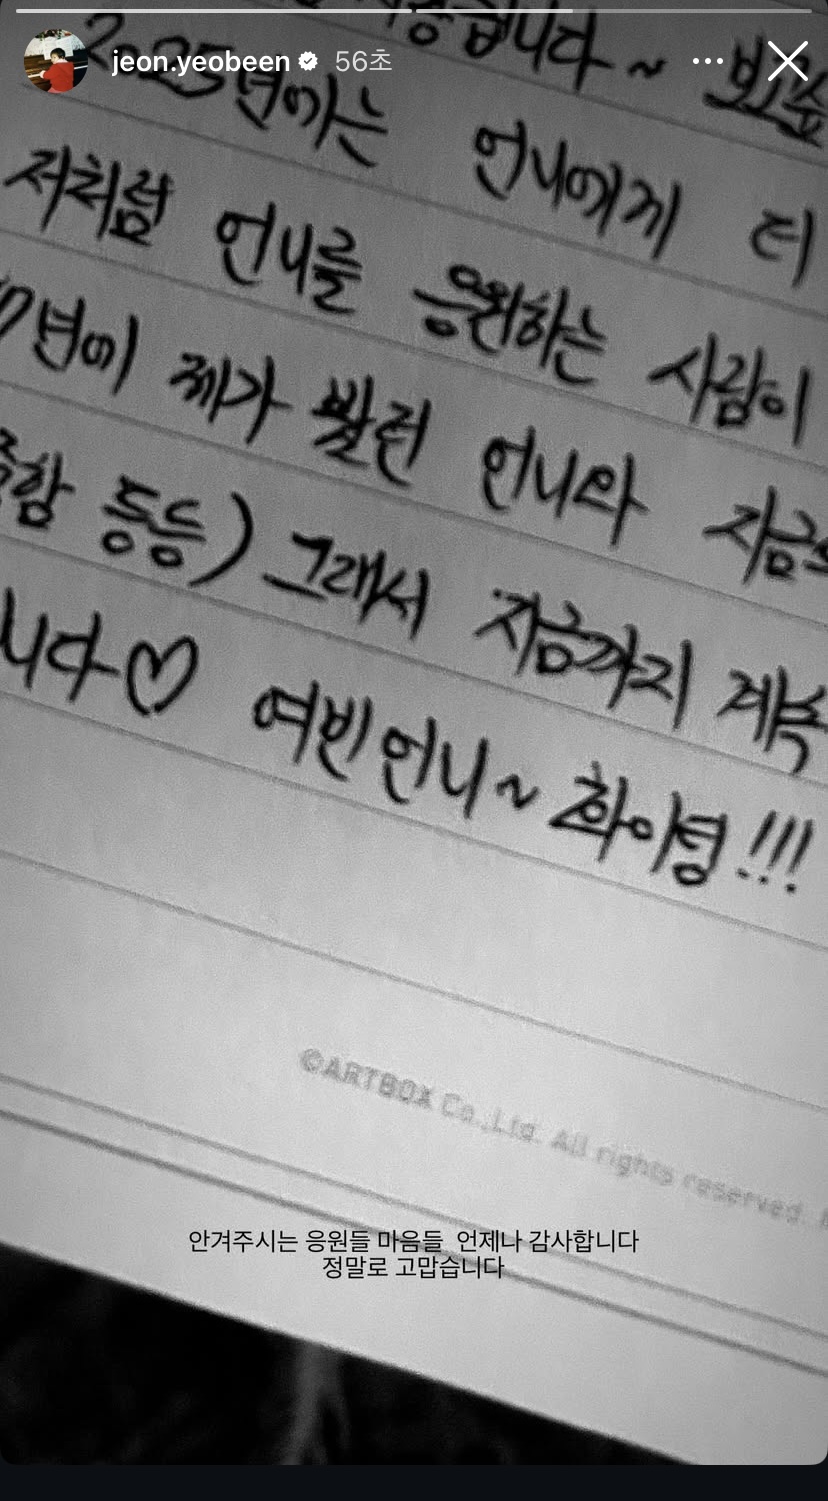 jeon.yeobeen 56초
2025년에는 언니에게 더
저처럼 언니를 응원하는 사람이
7년에 제가 봤던 언니와
등등) 그래서 지금까지 계속
니다♡ 여빈언니~ 화이팅!!!
©ARTBOX Co.,Ltd. All rights reserved.
안겨주시는 응원들 마음들 언제나 감사합니다
정말로 고맙습니다